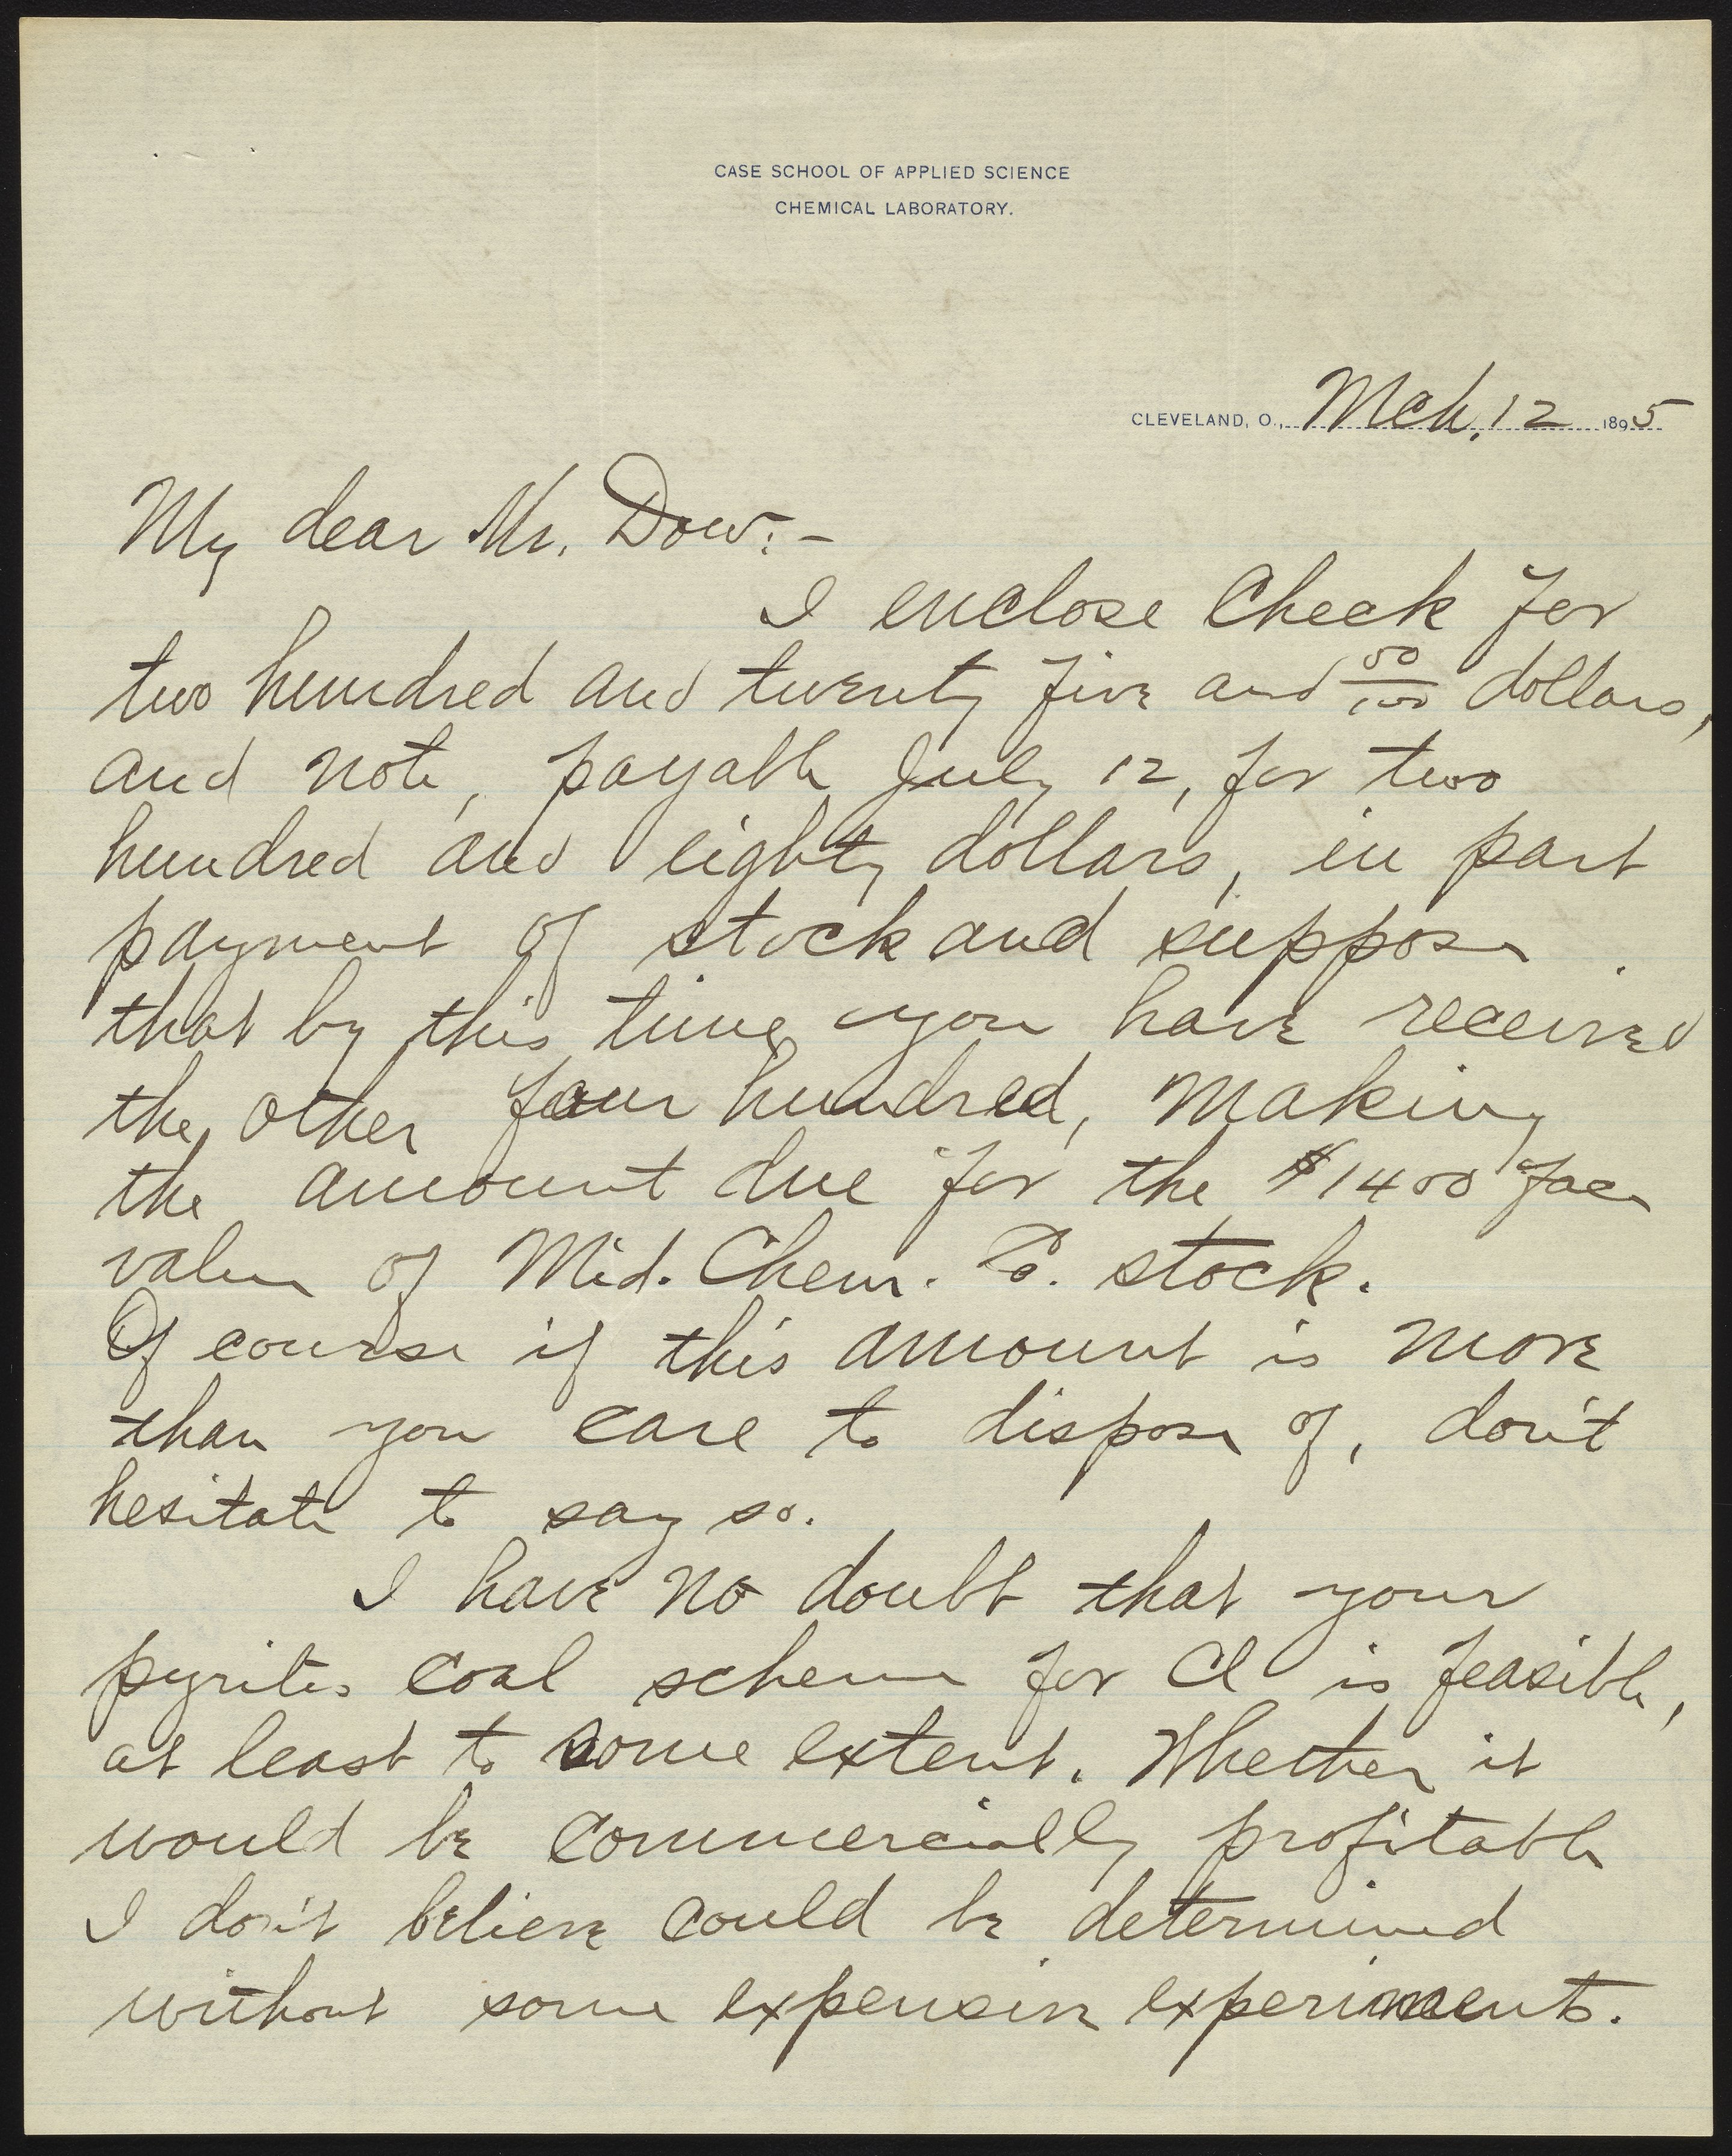 CASE SCHOOL OF APPLIED SCIENCE
CHEMICAL LABORATORY.
CLEVELAND, O., Mch. 12 1895
My dear Mr. Dow:-
I enclose Check for
two hundred and twenty five and 00/100 dollars,
and note, payable July 12, for two
hundred and eighty dollars, in part
payment of stock and suppose
that by this time you have received
the other four hundred, making
the amount due for the $1400 face
value of Mid. Chem. Co. stock.
Of course if this amount is more
than you care to dispose of, don't
hesitate to say so.
I have no doubt that your
pyrites coal scheme for Cl is feasible,
at least to some extent. Whether it
would be commercially profitable
I don't believe could be determined
without some expensive experiments.